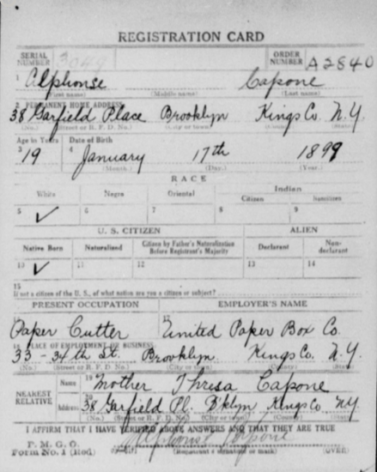 REGISTRATION CARD
SERIAL NUMBER 3049 ORDER NUMBER A2840
1 Alphonse Capone
(First name) (Middle name) (Last name)
2 PERMANENT HOME ADDRESS
38 Garfield Place Brooklyn Kings Co. N.Y.
(No.) (Street or R. F. D. No.) (City or town) (County) (State)
Age in Years Date of Birth
3 19 4 January 17th 1899
(Month.) (Day.) (Year.)
RACE
White Negro Oriental Indian
Citizen Noncitizen
5 ✓ 6 7 8 9
U. S. CITIZEN ALIEN
Native Born Naturalized Citizen by Father's Naturalization Before Registrant's Majority Declarant Non-declarant
10 ✓ 11 12 13 14
15
If not a citizen of the U. S., of what nation are you a citizen or subject?
PRESENT OCCUPATION EMPLOYER'S NAME
Paper Cutter United Paper Box Co.
18 PLACE OF EMPLOYMENT OR BUSINESS
33 - 34th St. Brooklyn Kings Co. N.Y.
(No.) (Street or R. F. D. No.) (City or town) (County) (State)
NEAREST RELATIVE Name 19 Mother Thresa Capone
Address 20 38 Garfield Pl. B'klyn Kings Co N.Y.
(No.) (City or town) (County) (State)
I AFFIRM THAT I HAVE VERIFIED ABOVE ANSWERS AND THAT THEY ARE TRUE
P. M. G. O.
Form No. 1 (Red) Alphonse Capone (OVER)